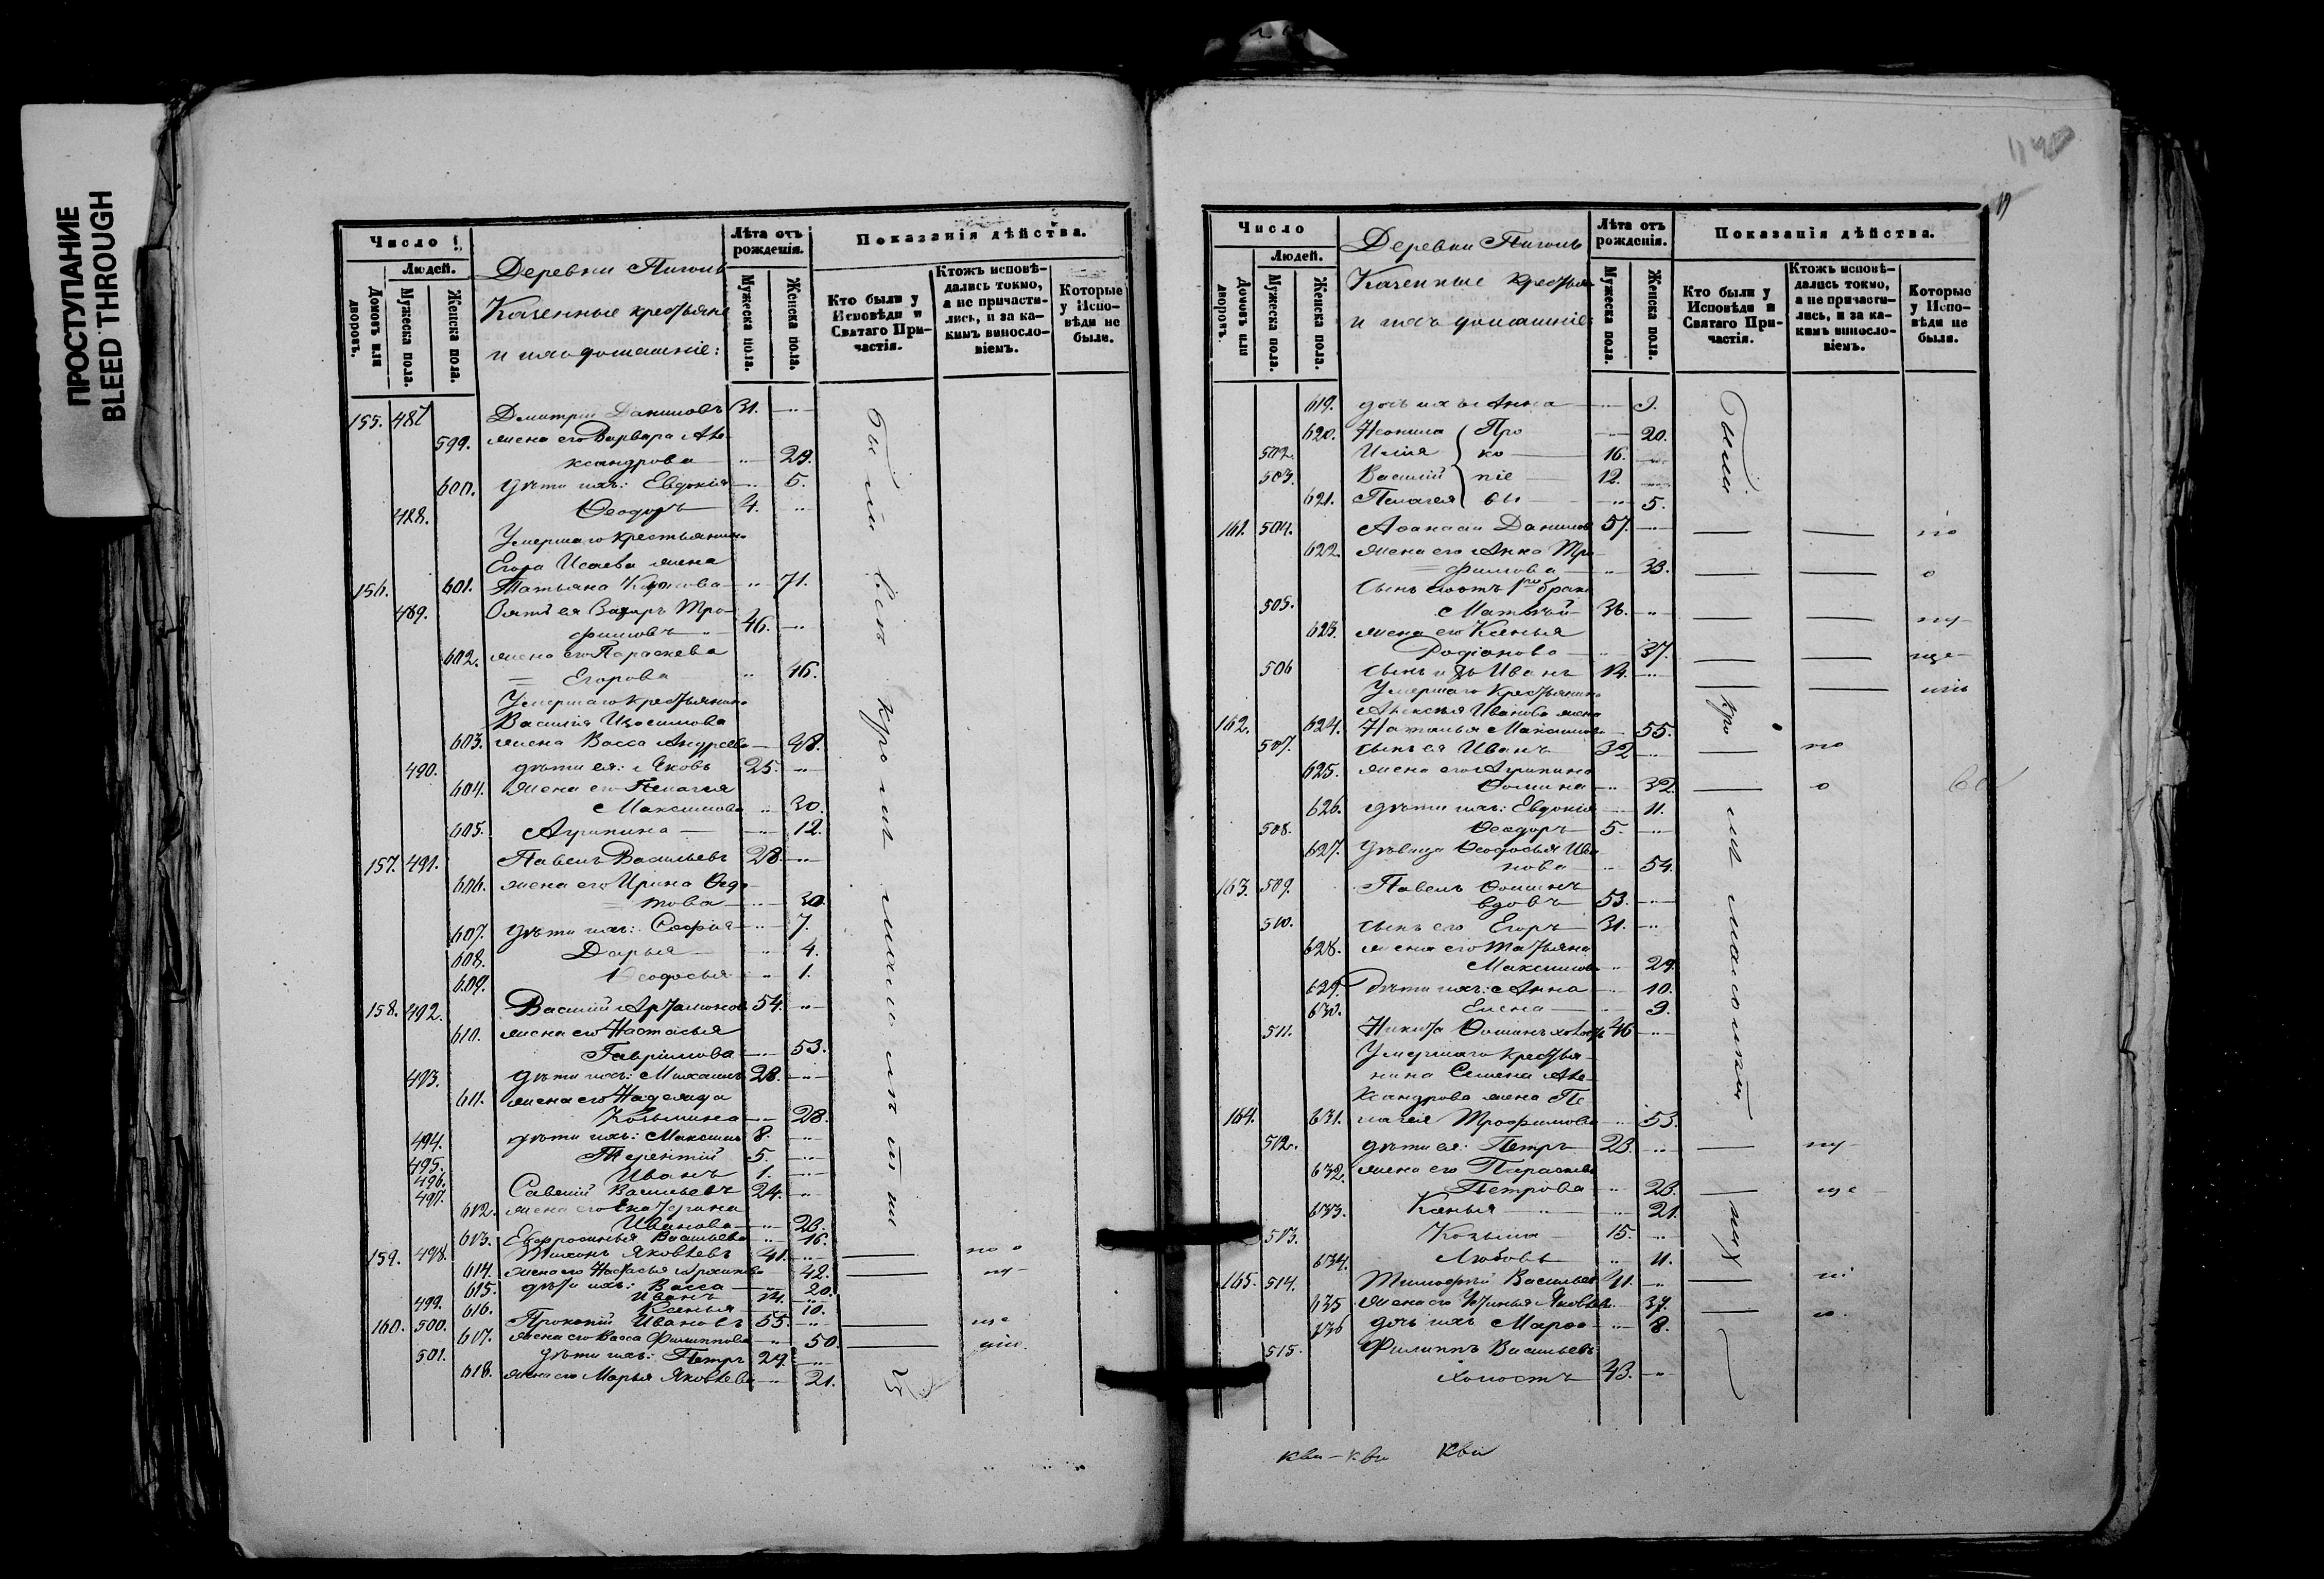 ПРОСТУПАНИЕ
BLEED THROUGH
Число
Людей.
Домовъ или дворовъ.
Мужеска пола.
Женска пола.
Деревни
Казенные крестьяне
и ихъ домашніе:
Лѣта отъ рожденія.
Мужеска пола.
Женска пола.
Показанія дѣйства.
Кто были у Исповѣди и Святаго Причастія.
Ктожъ исповѣдались токмо, а не причастились, и за какимъ винословіемъ.
Которые у Исповѣди не были.
155. 487 Дмитрій Даниловъ 31.
599. жена его Варвара Але-
ксандрова 29.
600. дѣти ихъ: Евдокія 5.
488. Ѳеодоръ 4.
Умершаго крестьянина
Егора Исаева жена
156. 601. Татьяна 71.
489. Зять ея Тро-
фимовъ 46.
602. жена его Параскева
Егорова 46.
Умершаго крестьянина
Василія Изосимова
603. жена Васса Андреева 48.
490. дѣти ея: Яковъ 25.
604. жена его Пелагея
Максимова 30.
605. Агрипина 12.
157. 491. Павелъ Васильевъ 28
606. жена его Ирина Ѳедо-
това 30.
607. дѣти ихъ: Софія 7.
608. Дарья 4.
609. Ѳеодосья 1.
158. 492. Василій Артамоновъ 54.
610. жена его Настасья
Гаврилова 53.
493. дѣти ихъ: Михаилъ 28.
611. жена его Надежда
Козьмина 28.
494. дѣти ихъ: Максимъ 8.
495. Терентій 5.
496. Иванъ 1.
497. Савелій Васильевъ 24.
612. жена его Екатерина
Иванова 23.
613. Евфросинья Васильева 16.
159. 498. Тихонъ Яковлевъ 41.
614. жена его Настасья 42.
615. дѣти ихъ: Васса 20.
499. Иванъ 14.
616. Ксенья 10.
160. 500. Прокопій Ивановъ 55.
617. жена его Васса Филиппова 50.
501. дѣти ихъ: Петръ 29.
618. жена его Марья Яковлева 21.
были всѣ кромѣ
Число
Людей.
Домовъ или дворовъ.
Мужеска пола.
Женска пола.
Деревни
Казенные крестьяне
и ихъ домашніе:
Лѣта отъ рожденія.
Мужеска пола.
Женска пола.
Показанія дѣйства.
Кто были у Исповѣди и Святаго Причастія.
Ктожъ исповѣдались токмо, а не причастились, и за какимъ винословіемъ.
Которые у Исповѣди не были.
619. дочь ихъ Анна 9.
620. Неонила Про 20.
502. Илія ко 16.
503. Василій піе 12.
621. Пелагея вы 5.
161. 504. Аѳанасій Даниловъ 57.
622. жена его Анна Тро-
фимова 33.
сынъ его отъ 1го брака
505. Матвѣй 36.
623. жена его Ксенья
Родіонова 37.
506 сынъ ихъ Иванъ 14.
Умершаго крестьянина
Алексѣя Иванова жена
162. 624. Наталья Максимова 55.
507. сынъ ея Иванъ 32
625. жена его Агрипина
Ѳомина 32.
626. дѣти ихъ: Евдокія 11.
508. Ѳеодоръ 5.
627. дѣвица Ѳеодосья Ива
нова 54.
163. 509. Павелъ Ѳоминъ
вдовъ 53.
510. сынъ его Егоръ 31.
628. жена его Татьяна
Максимова 29.
629. Дѣти ихъ: Анна 10.
630. Елена 9.
511. Никита Ѳоминъ холостъ 46
Умершаго крестья-
нина Семена Але-
ксандрова жена Пе
164. 631. лагея Трофимова 53.
512. дѣти ея: Петръ 23.
632. жена его Параскева
Петрова 23.
633. Ксенья 21.
513. Козьма 15.
634. Любовь 11.
165. 514. Тимофей Васильевъ 41.
635 жена его Устинья Яковлева 37.
636 дочь ихъ Марѳа 8.
515. Филиппъ Васильевъ
холостъ 43.
были
кро
мѣ